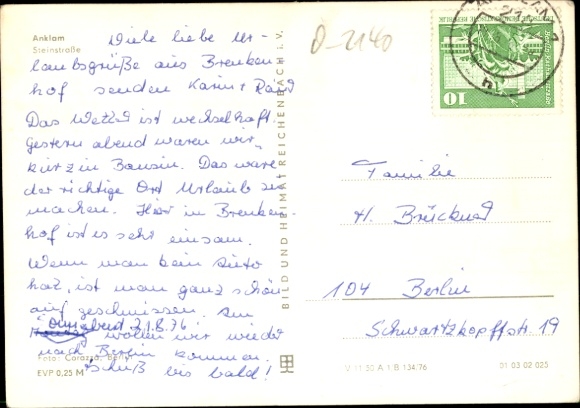 Anklam
Steinstraße
Viele liebe Ur-
laubsgrüße aus Brenken
hof senden Karin + Raid
Das Wetter ist wechselhaft.
Gestern abend waren wir
kurz in Bansin. Das wäre
der richtige Ort Urlaub zu
machen. Hier in Brenken-
hof ist es sehr einsam.
Wenn man kein Auto
hat, ist man ganz schön
auf geschmissen. Am
Sonnabend 21.8.76
wollen wir wieder
nach Berlin kommen.
Tschüß bis bald!
Foto: Corazza, Berlin
EVP 0,25 M
BILD UND HEIMAT REICHENBACH I. V.
D-2140
10
Familie
H. Brückner
104 Berlin
Schwartzkopffstr. 19
V 11 50 A 1/B 134/76
01 03 02 025